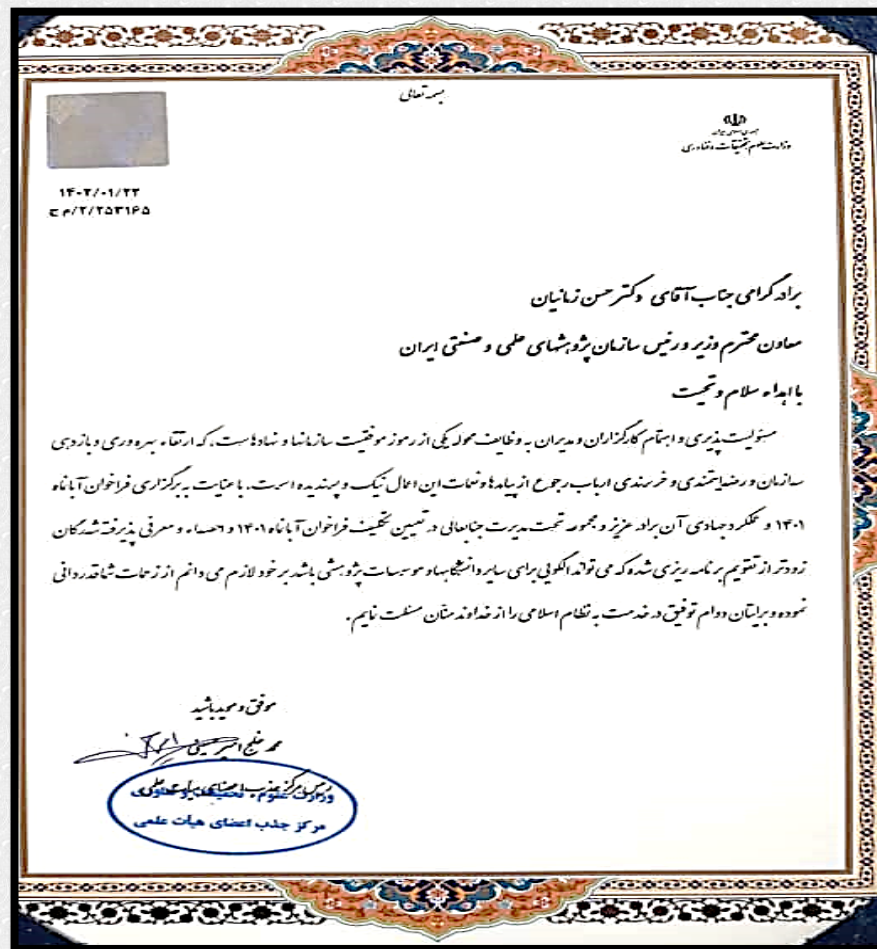 بسمه تعالی
جمهوری اسلامی ایران
وزارت علوم، تحقیقات و فناوری
۱۴۰۲/۰۱/۲۲
۲/۲۵۳۱۶۵/م ج
برادر گرامی جناب آقای دکتر حسن زمانیان
معاون محترم وزیر و رئیس سازمان پژوهشهای علمی و صنعتی ایران
با اهداء سلام و تحیت
مسئولیت پذیری و اهتمام کارگزاران و مدیران به وظایف محوله یکی از رموز موفقیت سازمانها و نهادهاست، که ارتقاء بهره وری و بازدهی
سازمان و رضایتمندی و خرسندی ارباب رجوع از پیامدها و ثمرات این اعمال نیک و پسندیده است. با عنایت به برگزاری فراخوان آبانماه
۱۴۰۱ و عملکرد جهادی آن برادر عزیز و مجموعه تحت مدیریت جنابعالی در تعیین تکلیف فراخوان آبانماه ۱۴۰۱ و احصاء و معرفی پذیرفته شدگان
زودتر از تقویم برنامه ریزی شده که می تواند الگویی برای سایر دانشگاهها و موسسات پژوهشی باشد بر خود لازم می دانم از زحمات شما قدردانی
نموده و برایتان دوام توفیق در خدمت به نظام اسلامی را از خداوند منان مسئلت نمایم.
موفق و موید باشید
محمد خلج امیرحسینی
رئیس مرکز جذب اعضای هیأت علمی
وزارت علوم، تحقیقات و فناوری
مرکز جذب اعضای هیات علمی